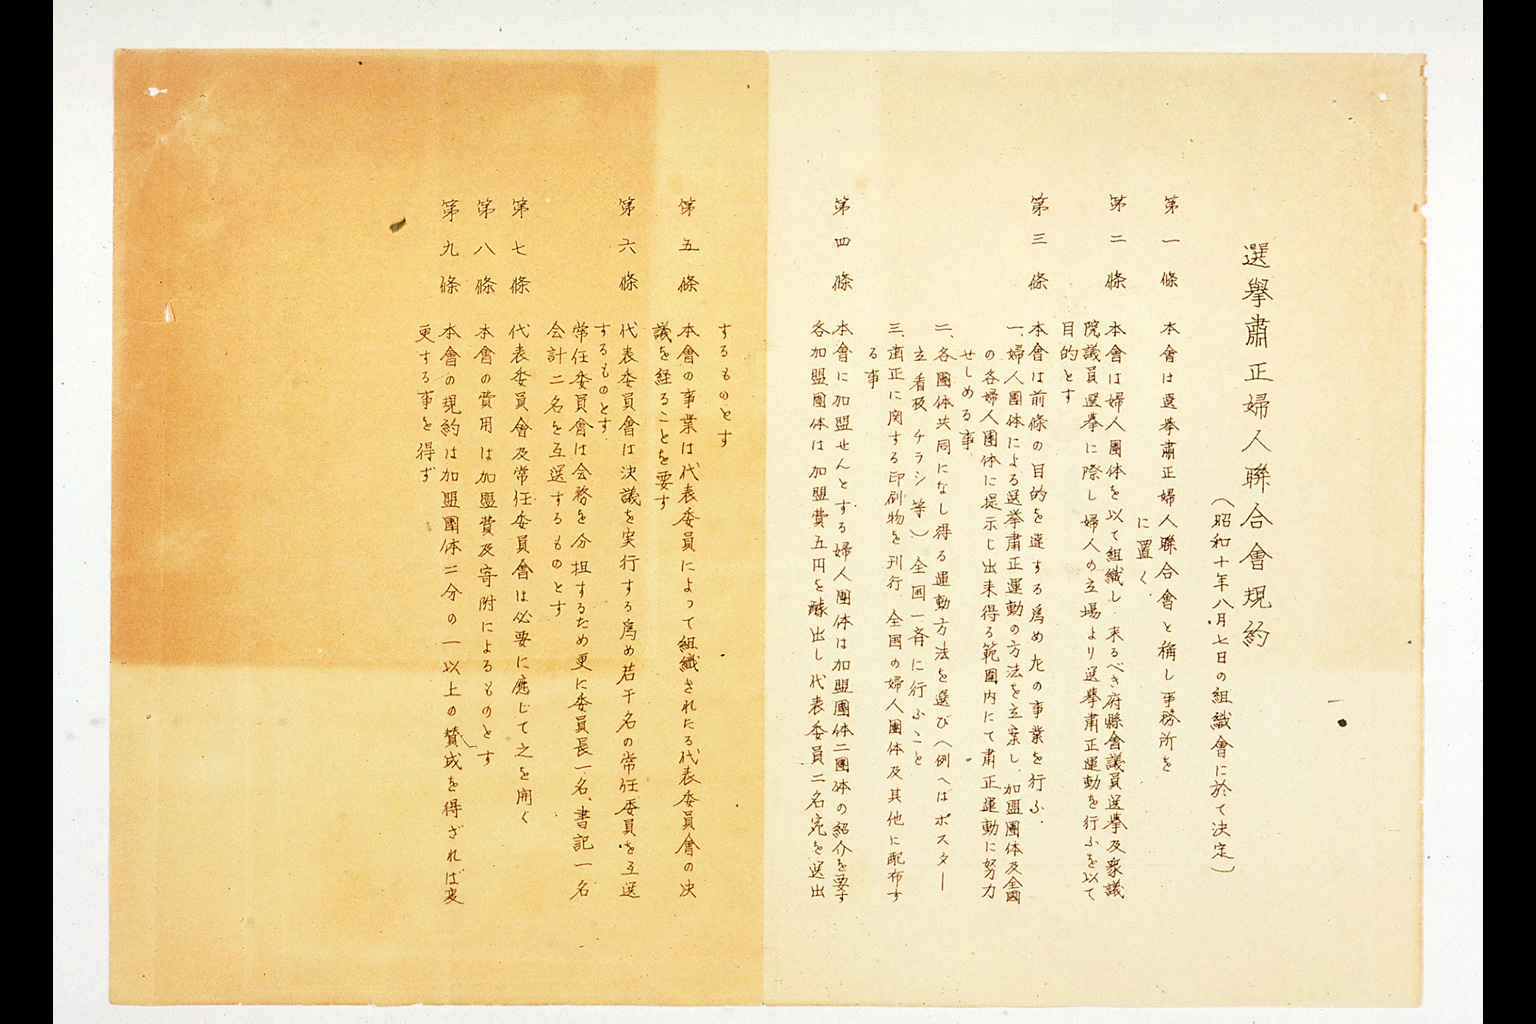 選擧肅正婦人聯合會規約
（昭和十年八月七日の組織會に於て決定）
第一條　本會は選挙肅正婦人聯合會と稱し事務所を
に置く、
第二條　本會は婦人團体を以て組織し来るべき府縣會議員選挙及衆議
院議員選挙に際し婦人の立場より選挙肅正運動を行ふを以て
目的とす
第三條　本會は前條の目的を達する爲め左の事業を行ふ、
一、婦人團体による選挙肅正運動の方法を立案し、加盟團体及全國
の各婦人團体に提示し出来得る範囲内にて肅正運動に努力
せしめる事
二、各團体共同になし得る運動方法を選び（例へばポスター
立看板　チラシ等）全国一斉に行ふこと
三、肅正に関する印刷物を刊行、全国の婦人團体及其他に配布す
る事
第四條　本會に加盟せんとする婦人團体は加盟團体二團体の紹介を要す
各加盟團体は加盟費五円を醵出し代表委員二名宛を選出
するものとす
第五條　本會の事業は代表委員によって組織されたる代表委員會の決
議を経ることを要す
第六條　代表委員會は決議を実行する爲め若干名の常任委員を互選
するものとす
常任委員會は会務を分担するため更に委員長一名、書記一名
会計二名を互選するものとす
第七條　代表委員會及常任委員會は必要に應じて之を開く
第八條　本會の費用は加盟費及寄附によるものとす
第九條　本會の規約は加盟團体三分の一以上の賛成を得ざれば変
更する事を得ず